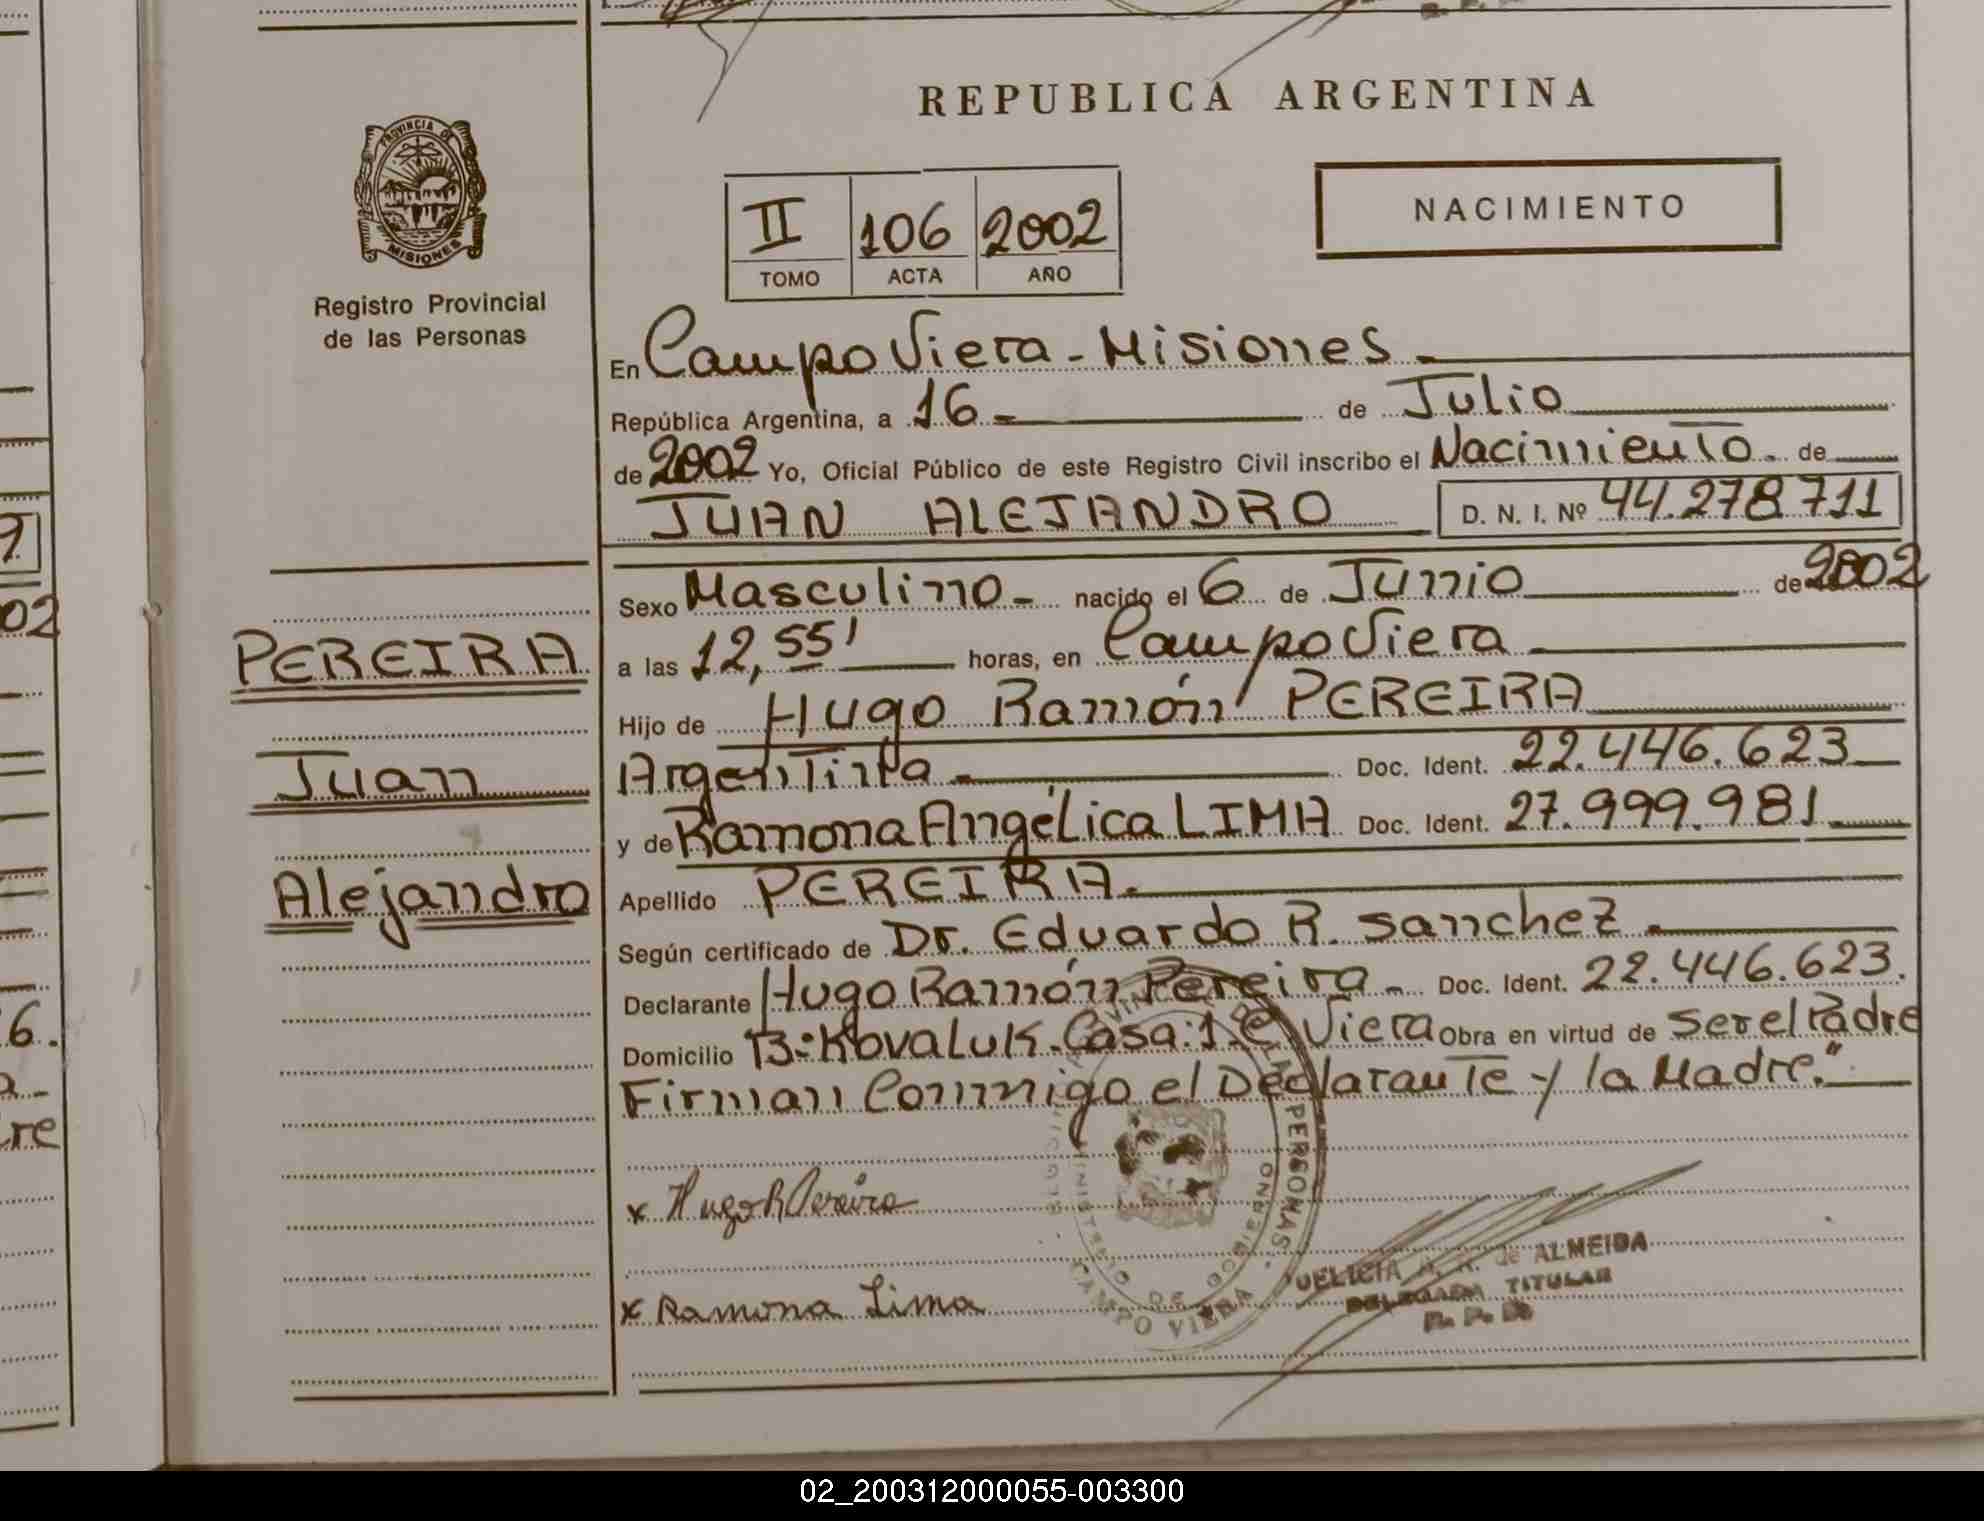 REPUBLICA ARGENTINA
PROVINCIA DE
MISIONES
Registro Provincial
de las Personas
II 106 2002
TOMO ACTA AÑO
NACIMIENTO
En Campo Viera - Misiones.
República Argentina, a 16 de Julio
de 2002 Yo, Oficial Público de este Registro Civil inscribo el Nacimiento de
JUAN ALEJANDRO D. N. I. Nº 44.278.711
PEREIRA
Juan
Alejandro
Sexo Masculino - nacido el 6 de Junio de 2002
a las 12,55' horas, en Campo Viera
Hijo de Hugo Ramón PEREIRA
Argentina Doc. Ident. 22.446.623
y de Ramona Angélica LIMA Doc. Ident. 27.999.981
Apellido PEREIRA.
Según certificado de Dr. Eduardo R. Sanchez.
Declarante Hugo Ramón Pereira - Doc. Ident. 22.446.623.
Domicilio B:Kovaluk.Casa:1.C. Viera Obra en virtud de ser el Padre
Firman Conmigo el Declarante y la Madre."
x Hugo R Pereira
x Ramona Lima
PERSONAS
MINISTERIO DE GOBIERNO
CAMPO VIERA
de ALMEIDA
DELEGADA TITULAR
02_200312000055-003300